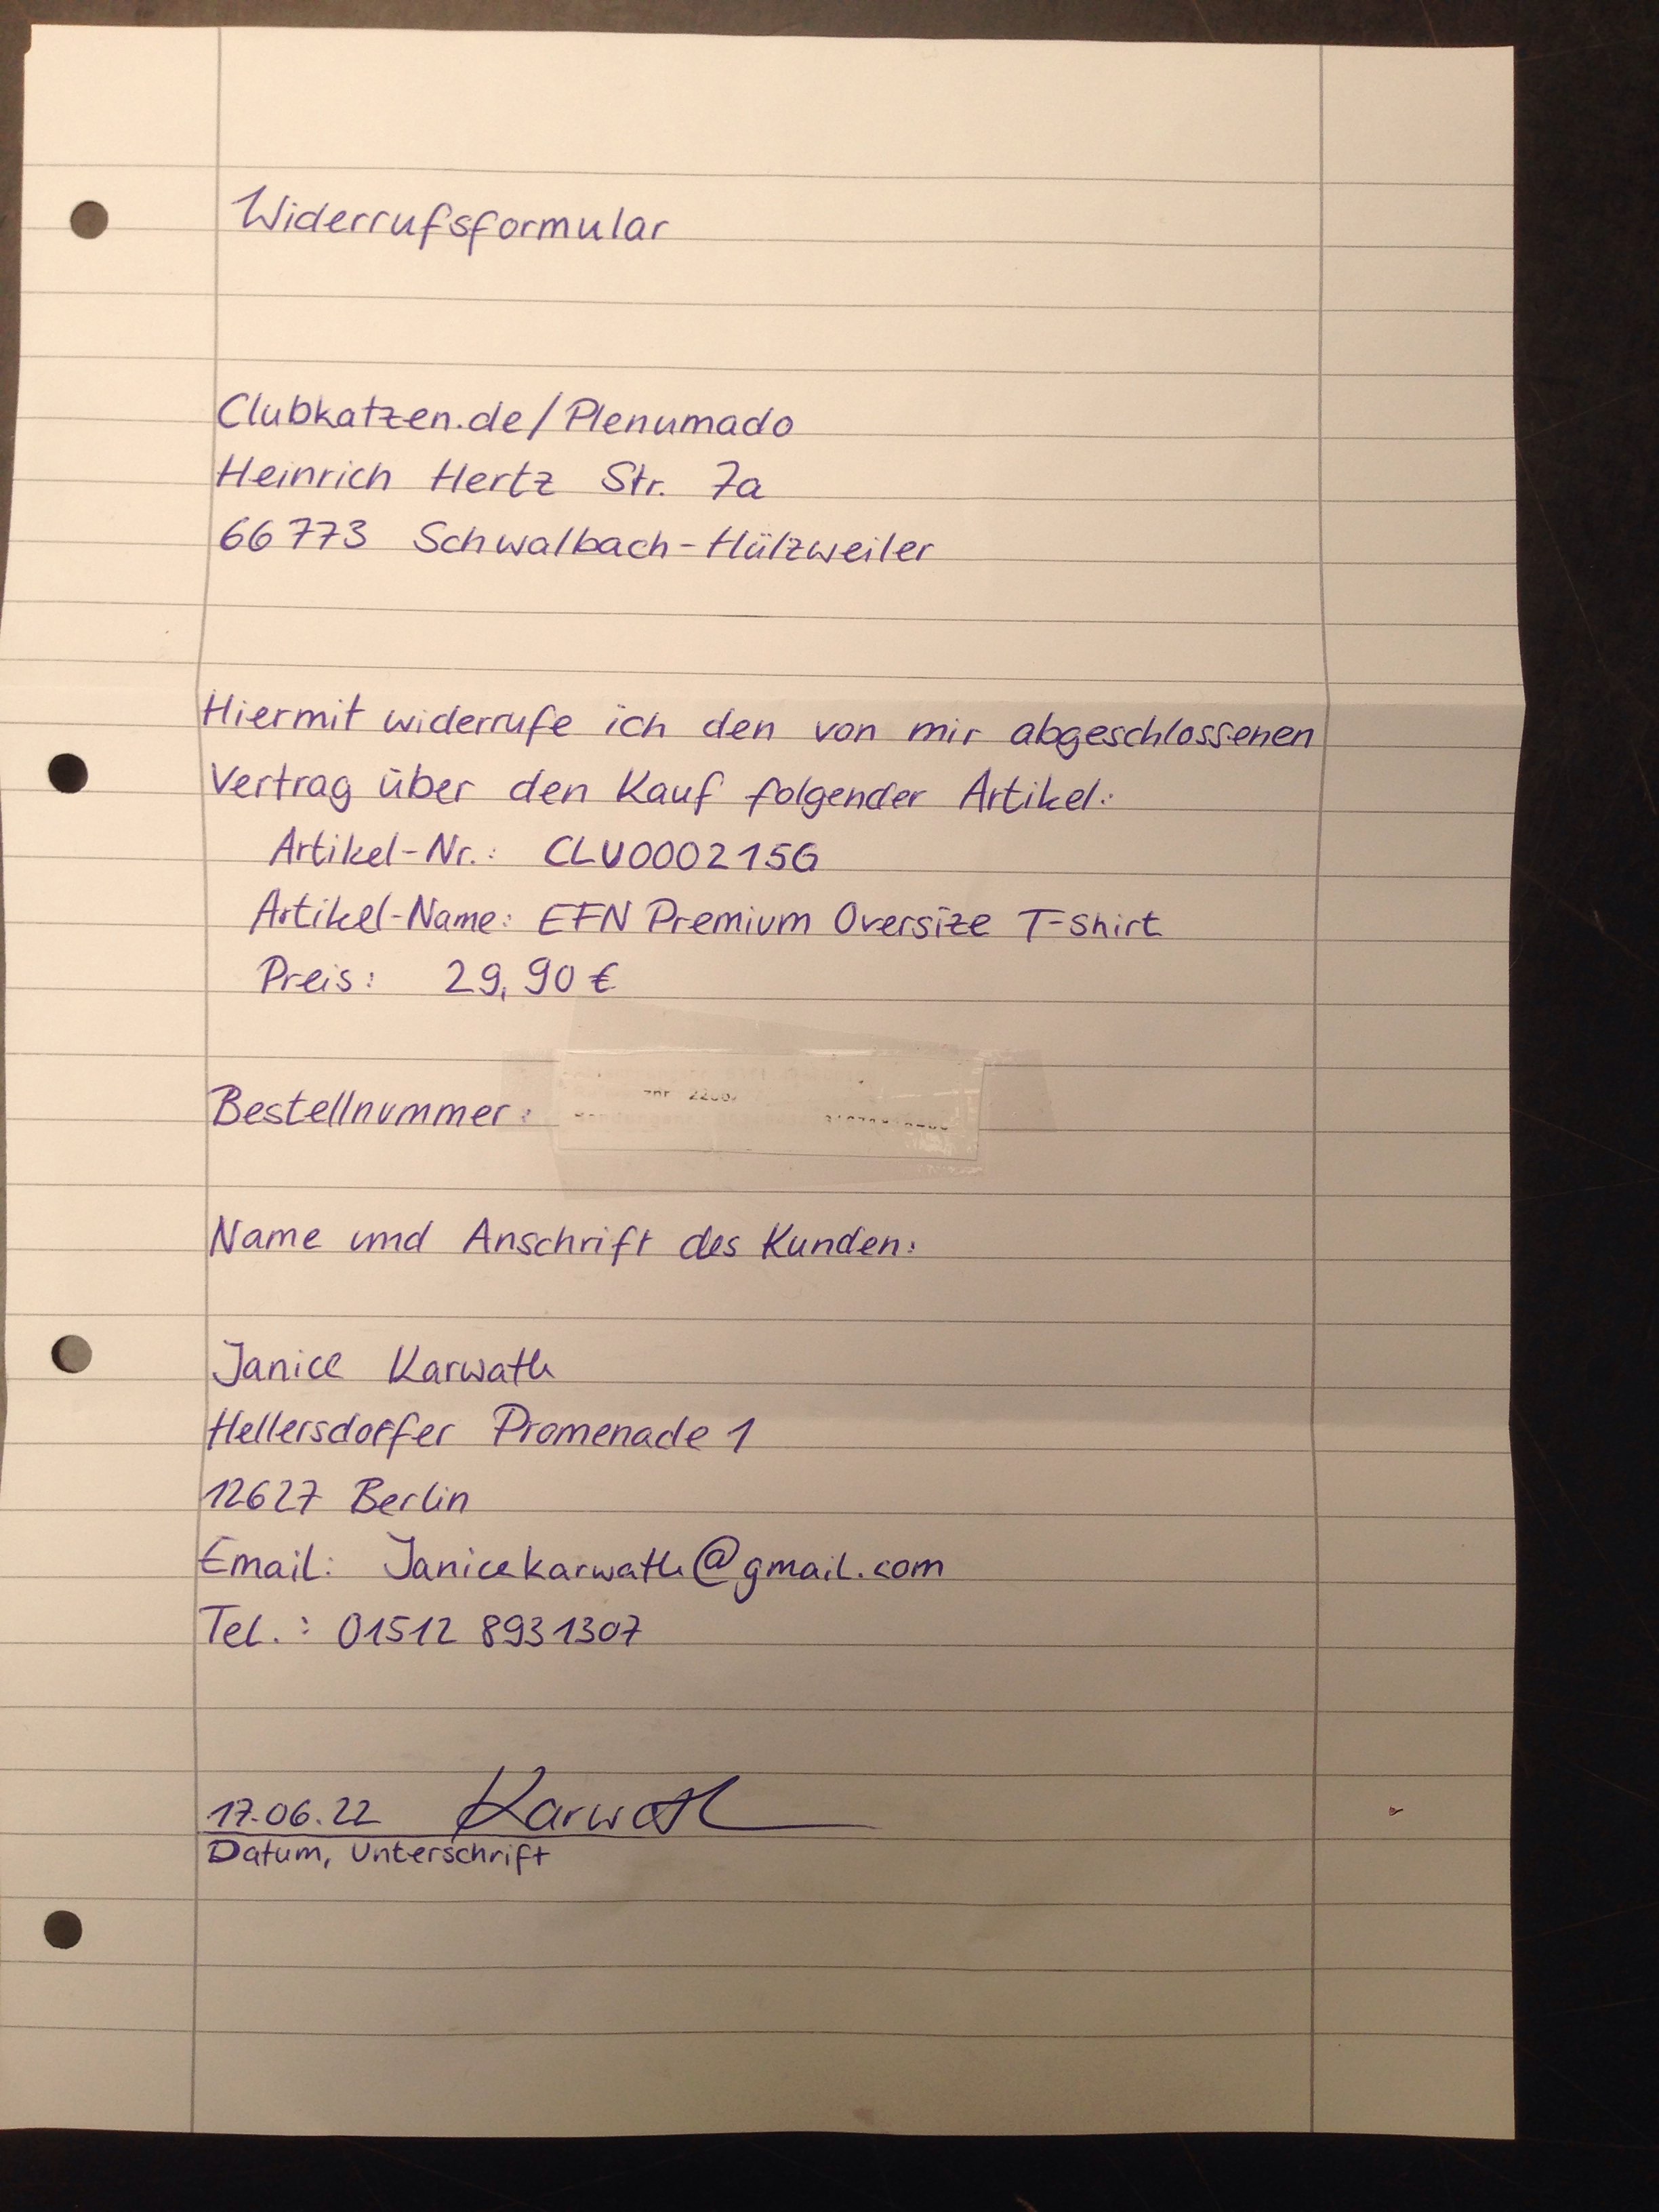 Widerrufsformular
Clubkatzen.de/Plenumado
Heinrich Hertz Str. 7a
66773 Schwalbach-Hülzweiler
Hiermit widerrufe ich den von mir abgeschlossenen
Vertrag über den Kauf folgender Artikel:
Artikel-Nr.: CLU000215G
Artikel-Name: EFN Premium Oversize T-Shirt
Preis: 29,90 €
Bestellnummer:
Name und Anschrift des Kunden:
Janice Karwath
Hellersdorfer Promenade 1
12627 Berlin
Email: Janicekarwath@gmail.com
Tel.: 01512 8931307
17.06.22 Karwath
Datum, Unterschrift